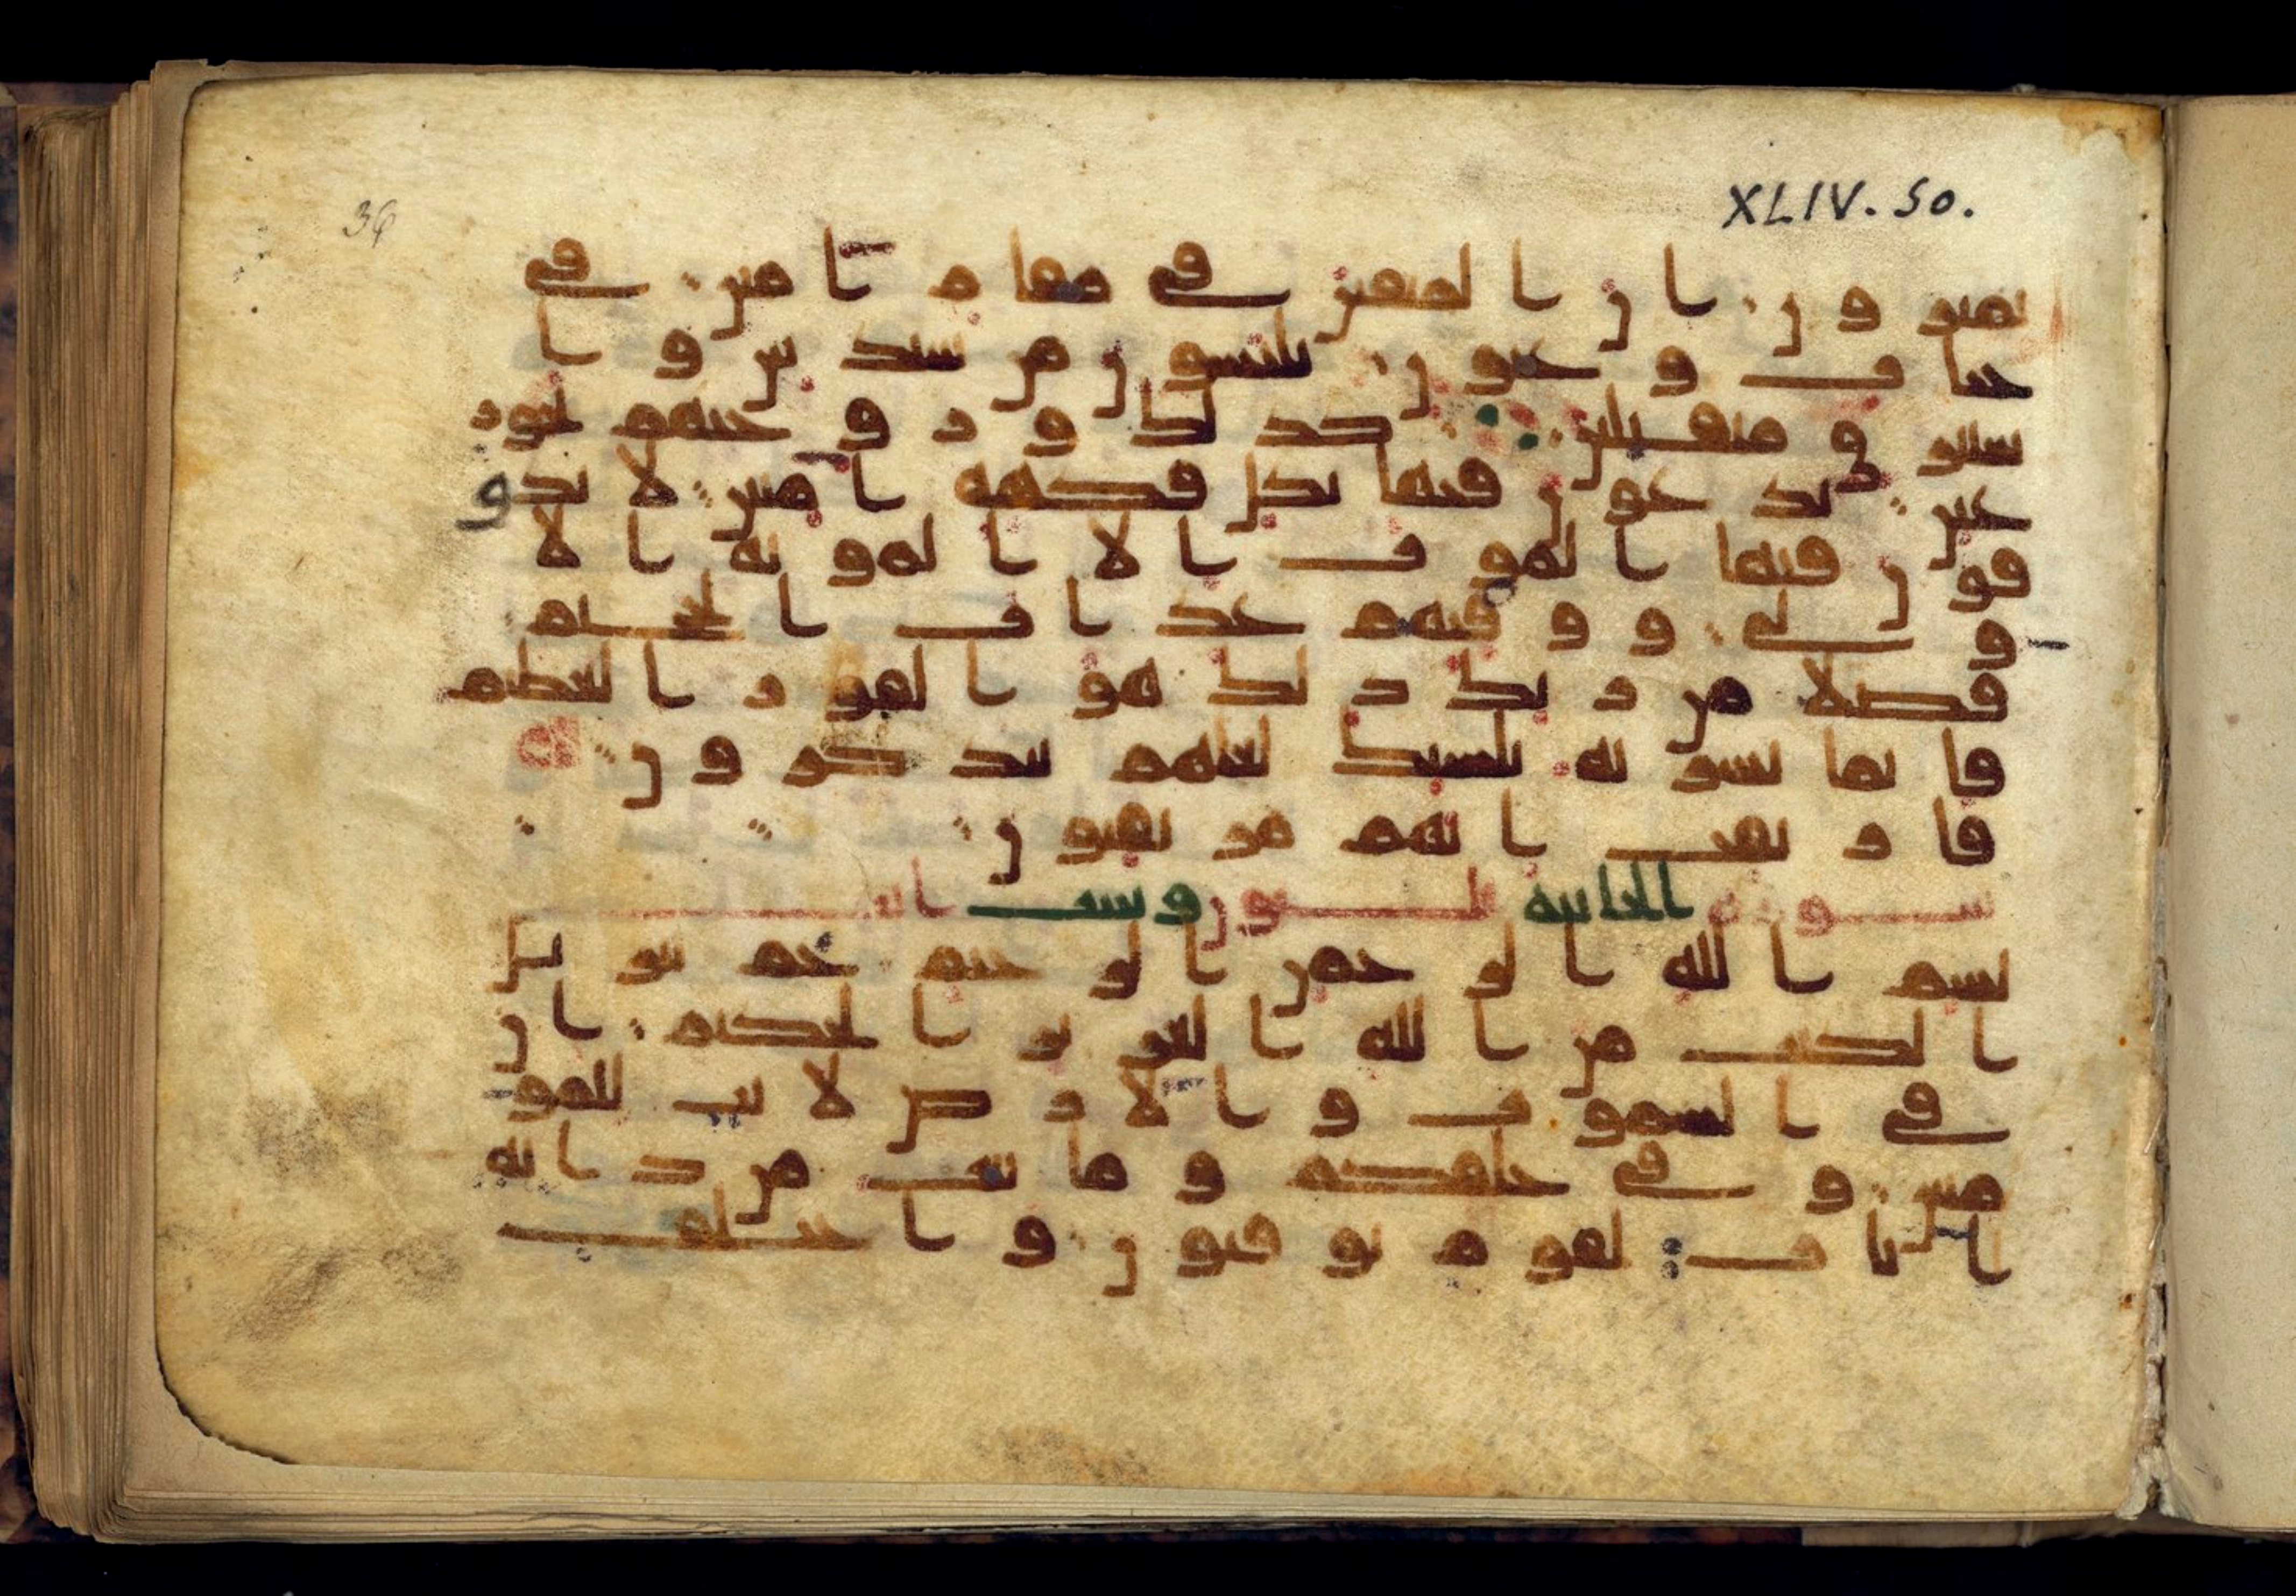 36
XLIV. 50.
تمترون ان المتقين في مقام امين في
جنات وعيون يلبسون من سندس وا
ستبرق متقبلين كذلك وزوجنهم بحور
عين يدعون فيها بكل فكهة امنين لا يذو
قون فيها الموت الا الموتة الا
ولى ووقيهم عذاب الجحيم
فضلا من ربك ذلك هو الفوز العظيم
فانما يسرنه بلسنك لعلهم يتذكرون
فارتقب انهم مرتقبون
سورة الجاثية ثلثون وست ايت
بسم الله الرحمن الرحيم حم تنزيل
الكتب من الله العزيز الحكيم ان
في السموت والارض لايت للمو
منين وفي خلقكم وما يبث من دابة
ايات لقوم يوقنون واختلف